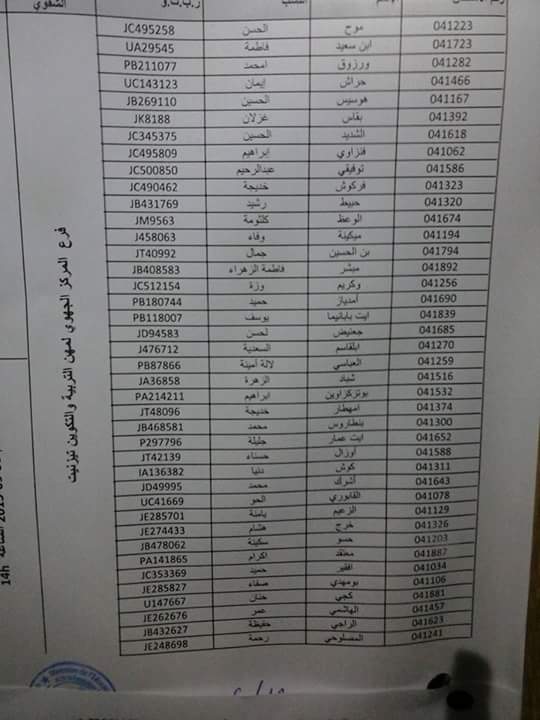 الشفوي
041223 موح الحسن JC495258
041723 ابن سعيد فاطمة UA29545
041282 ورزوق امحمد PB211077
041466 حراش إيمان UC143123
041167 هوسيس الحسين JB269110
041392 بقاس غزلان JK8188
041618 الشديد الحسين JC345375
041062 فنزاوي إبراهيم JC495809
041586 توفيقي عبدالرحيم JC500850
041323 فركوش خديجة JC490462
041320 حبيبط رشيد JB431769
041674 الوعظ كلثومة JM9563
041194 ميكينة وفاء J458063
041794 بن الحسين جمال JT40992
041892 مبشر فاطمة الزهراء JB408583
041256 وكريم وزة JC512154
041690 أمدياز حميد PB180744
041839 ايت بابانيما يوسف PB118007
041685 جعنيض لحسن JD94583
041270 ابلقاسم السعدية J476712
041259 العباسي لالة أمينة PB87866
041516 شباد الزهرة JA36858
041532 بوتزكراوين ابراهيم PA214211
041374 امهطار خديجة JT48096
041300 بنطاروس محمد JB468581
041652 ايت عمار جليلة P297796
041588 أوزال حسناء JT42139
041311 كوش دنيا IA136382
041643 أشرك محمد JD49995
041078 القابوري الحو UC41669
041129 الزعيم يامنة JE285701
041326 خرج هشام JE274433
041203 حسو سكينة JB478062
041887 معتقد اكرام PA141865
041034 افقير حميد JC353369
041106 بومهدي صفاء JE285827
041881 كجي حنان U147667
041457 الهاشمي عمر JE262676
041623 الراجي حفيظة JB432627
041241 المصلوحي رحمة JE248698
فرع المركز الجهوي لمهن التربية والتكوين تيزنيت
الساعة 14h